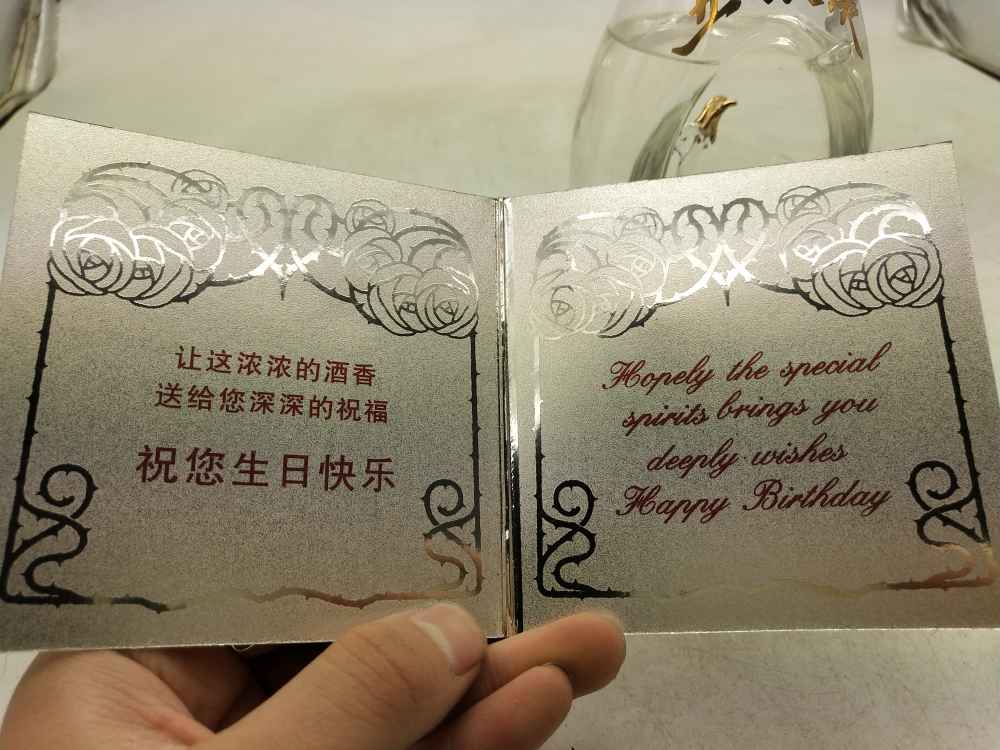 让这浓浓的酒香
送给您深深的祝福
祝您生日快乐
Hopely the special
spirits brings you
deeply wishes
Happy Birthday